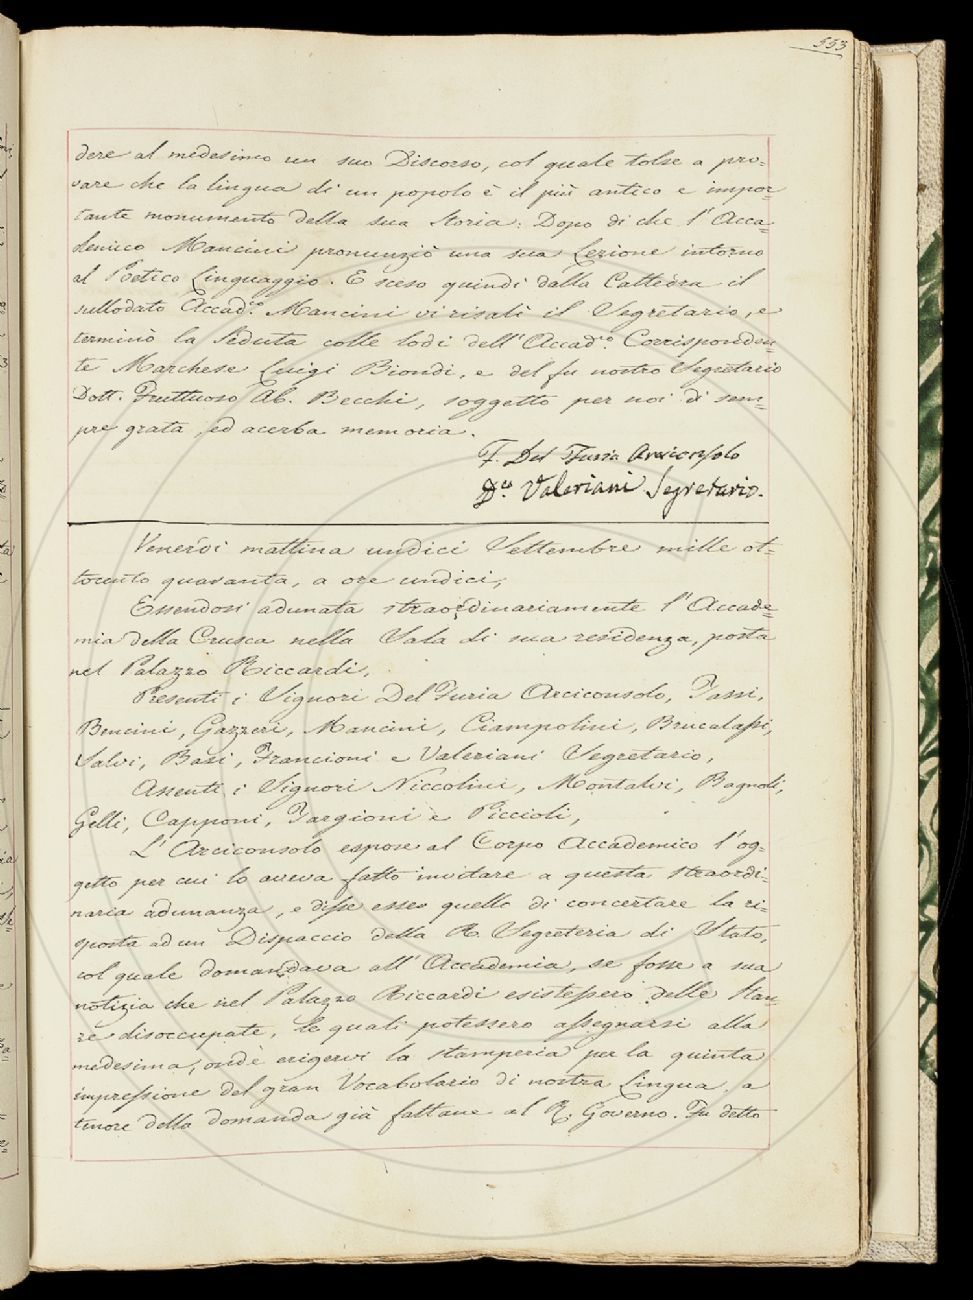 553
dere al medesimo un suo Discorso, col quale tolse a pro=
vare che la lingua di un popolo è il più antico e impor=
tante monumento della sua storia: Dopo di che l'Acca=
demico Mancini pronunziò una sua Lezione intorno
al Poetico Linguaggio. E sceso quindi dalla Cattedra il
sullodato Accad.co Mancini vi risalì il Segretario, e
terminò la Seduta colle lodi dell'Accad.co Corrisponden=
te Marchese Luigi Biondi, e del fu nostro Segretario
Dott. Fruttuoso Ab. Becchi, soggetto per noi di sem=
pre grata, ed acerba memoria.
F. Del Furia Arciconsolo
D.co Valeriani Segretario.
Venerdì mattina undici Settembre mille ot=
tocento quaranta, a ore undici,
Essendosi adunata straordinariamente l'Accade=
mia della Crusca nella Sala di sua residenza, posta
nel Palazzo Riccardi,
Presenti i Signori Del Furia Arciconsolo, Tassi,
Bencini, Gazzeri, Mancini, Ciampolini, Brucalassi,
Salvi, Basi, Francioni e Valeriani Segretario,
Assenti i Signori Niccolini, Montalvi, Bagnoli,
Gelli, Capponi, Targioni e Piccioli,
L'Arciconsolo espose al Corpo Accademico l'og=
getto per cui lo aveva fatto invitare a questa straordi=
naria adunanza, e disse esser quello di concertare la ri=
sposta ad un Dispaccio della R. Segreteria di Stato,
col quale domandava all'Accademia, se fosse a sua
notizia che nel Palazzo Riccardi esistessero delle stan=
ze disoccupate, le quali potessero assegnarsi alla
medesima, onde erigervi la stamperia per la quinta
impressione del gran Vocabolario di nostra Lingua, a
tenore della domanda già fattane al R. Governo. Fu detto